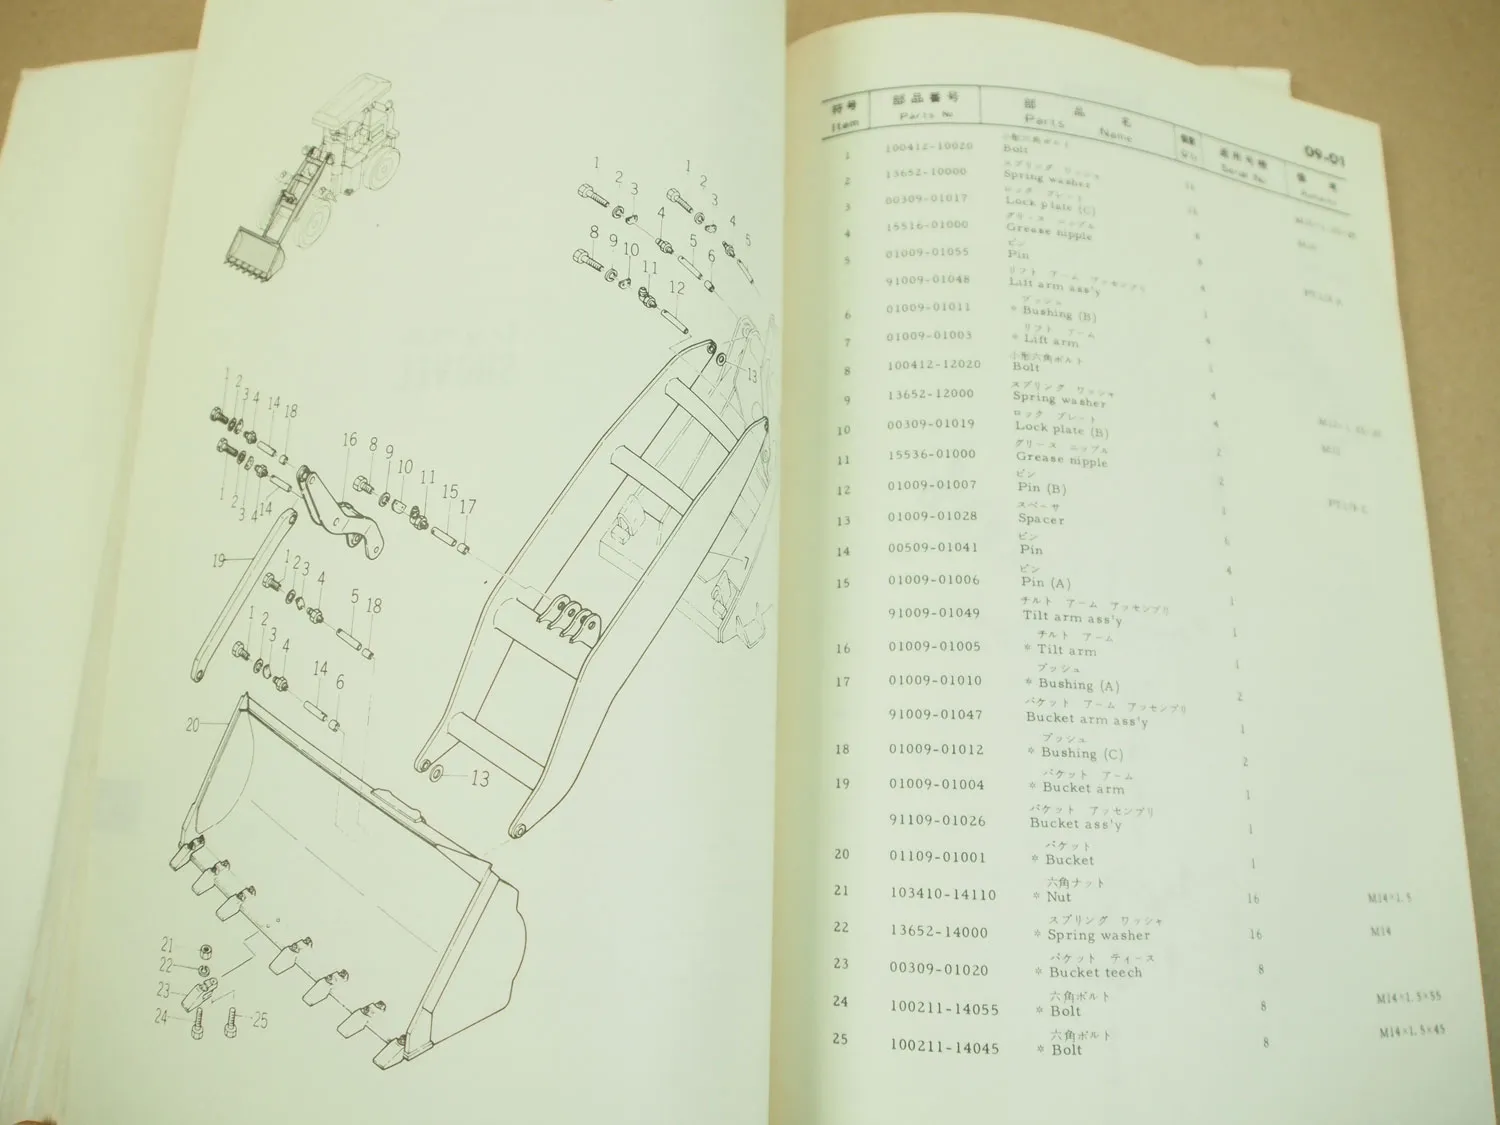 1 2 3
1 2 3
4 4
5 5
6
8 9 10
11
12
13
7
1 2 3 4 14 18
1 2 3 4 14
16 8 9 10
11 15 17
19
1 2 3 4
5 18
1 2 3 4
14 6
20
13
21
22
23
24 25
09-01
符号 部品番号 部品名
Item Parts No Parts Name Serial No. Remarks
小形六角ボルト
1 100412-10020 Bolt
スプリング ワッシャ
2 13652-10000 Spring washer
ロック プレート
3 00309-01017 Lock plate (C)
グリース ニップル
4 15516-01000 Grease nipple
ピン
5 01009-01055 Pin
リフト アーム アッセンブリ
91009-01048 Lift arm ass'y
ブッシュ
6 01009-01011 * Bushing (B) 4
リフト アーム
7 01009-01003 * Lift arm
小形六角ボルト
8 100412-12020 Bolt 4
スプリング ワッシャ
9 13652-12000 Spring washer 4
ロック プレート
10 00309-01019 Lock plate (B) 2
グリース ニップル
11 15536-01000 Grease nipple 2
ピン
12 01009-01007 Pin (B)
スペーサ
13 01009-01028 Spacer
ピン
14 00509-01041 Pin 4
ピン
15 01009-01006 Pin (A) 1
チルト アーム アッセンブリ
91009-01049 Tilt arm ass'y 1
チルト アーム
16 01009-01005 * Tilt arm 1
ブッシュ
17 01009-01010 * Bushing (A) 2
バケット アーム アッセンブリ
91009-01047 Bucket arm ass'y 1
ブッシュ
18 01009-01012 * Bushing (C) 2
バケット アーム
19 01009-01004 * Bucket arm 1
バケット アッセンブリ
91109-01026 Bucket ass'y 1
バケット
20 01109-01001 * Bucket 1
六角ナット
21 103410-14110 * Nut 16 M14×1.5
スプリング ワッシャ
22 13652-14000 * Spring washer 16 M14
バケット ティース
23 00309-01020 * Bucket teech 8
六角ボルト
24 100211-14055 * Bolt 8 M14×1.5×55
六角ボルト
25 100211-14045 * Bolt 8 M14×1.5×45